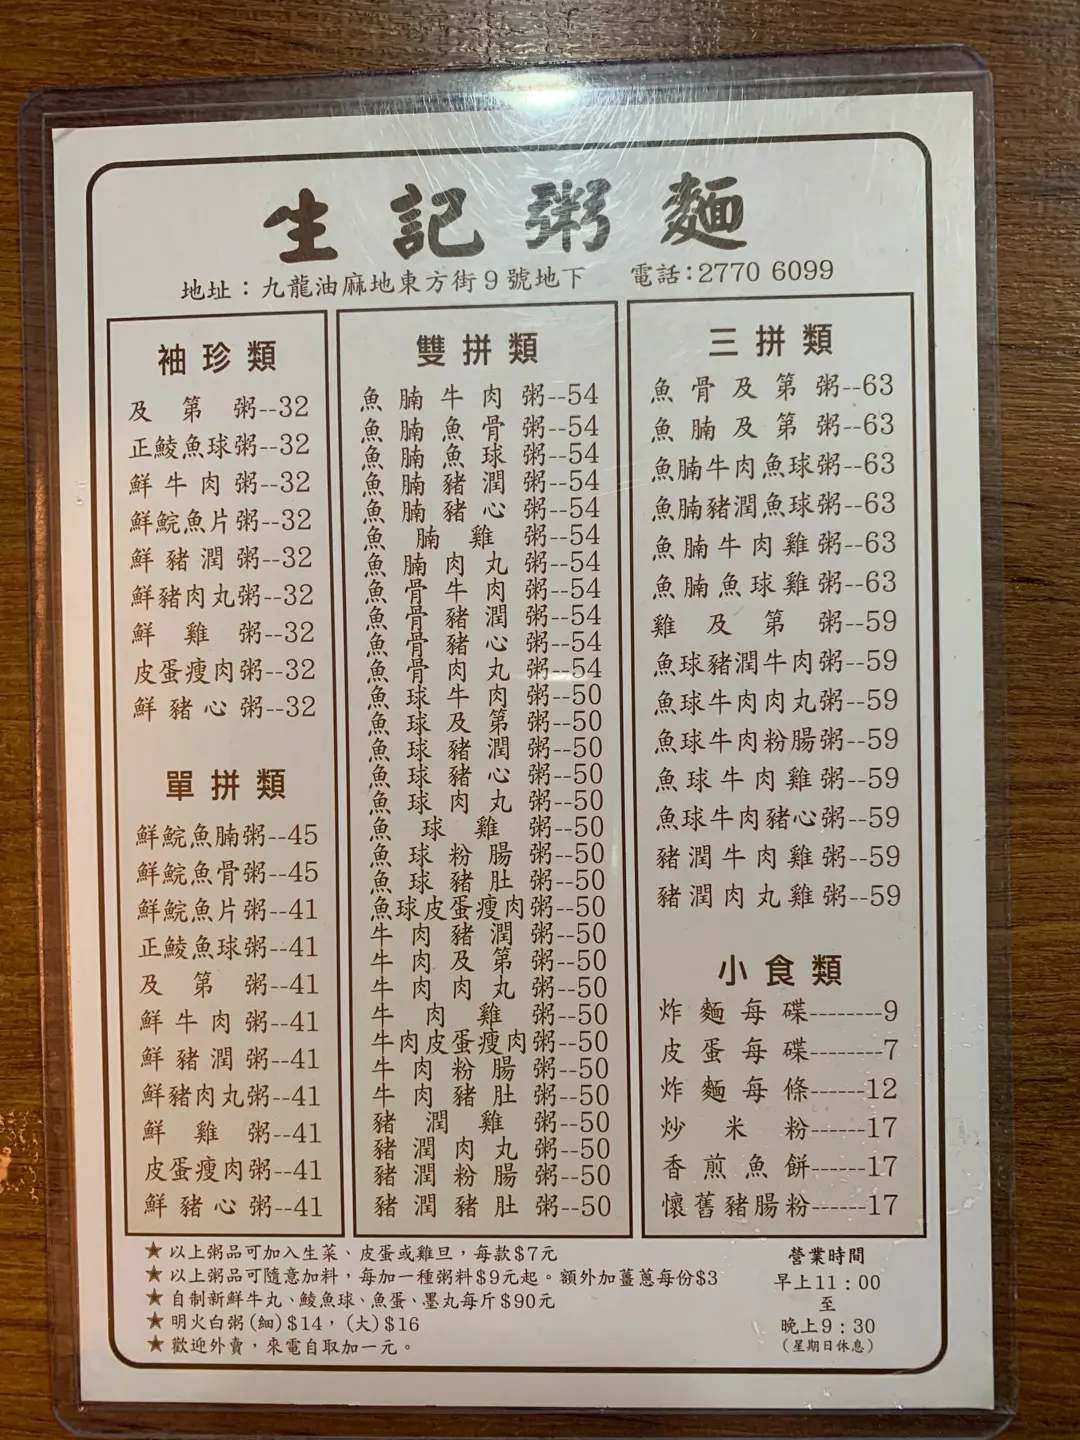 生記粥麵
地址：九龍油麻地東方街9號地下 電話:2770 6099
袖珍類
及第粥--32
正鯪魚球粥--32
鮮牛肉粥--32
鮮鯇魚片粥--32
鮮豬潤粥--32
鮮豬肉丸粥--32
鮮雞粥--32
皮蛋瘦肉粥--32
鮮豬心粥--32
單拼類
鮮鯇魚腩粥--45
鮮鯇魚骨粥--45
鮮鯇魚片粥--41
正鯪魚球粥--41
及第粥--41
鮮牛肉粥--41
鮮豬潤粥--41
鮮豬肉丸粥--41
鮮雞粥--41
皮蛋瘦肉粥--41
鮮豬心粥--41
雙拼類
魚腩牛肉粥--54
魚腩魚骨粥--54
魚腩魚球粥--54
魚腩豬潤粥--54
魚腩豬心粥--54
魚腩雞粥--54
魚腩肉丸粥--54
魚骨牛肉粥--54
魚骨豬潤粥--54
魚骨豬心粥--54
魚骨肉丸粥--54
魚球牛肉粥--50
魚球及第粥--50
魚球豬潤粥--50
魚球豬心粥--50
魚球肉丸粥--50
魚球雞粥--50
魚球粉腸粥--50
魚球豬肚粥--50
魚球皮蛋瘦肉粥--50
牛肉豬潤粥--50
牛肉及第粥--50
牛肉肉丸粥--50
牛肉雞粥--50
牛肉皮蛋瘦肉粥--50
牛肉粉腸粥--50
牛肉豬肚粥--50
豬潤雞粥--50
豬潤肉丸粥--50
豬潤粉腸粥--50
豬潤豬肚粥--50
三拼類
魚骨及第粥--63
魚腩及第粥--63
魚腩牛肉魚球粥--63
魚腩豬潤魚球粥--63
魚腩牛肉雞粥--63
魚腩魚球雞粥--63
雞及第粥--59
魚球豬潤牛肉粥--59
魚球牛肉肉丸粥--59
魚球牛肉粉腸粥--59
魚球牛肉雞粥--59
魚球牛肉豬心粥--59
豬潤牛肉雞粥--59
豬潤肉丸雞粥--59
小食類
炸麵每碟--------9
皮蛋每碟--------7
炸麵每條------12
炒米粉------17
香煎魚餅------17
懷舊豬腸粉------17
★以上粥品可加入生菜、皮蛋或雞旦，每款$7元
★以上粥品可隨意加料，每加一種粥料$9元起。額外加薑蔥每份$3
★自制新鮮牛丸、鯪魚球、魚蛋、墨丸每斤$90元
★明火白粥(細)$14，(大)$16
★歡迎外賣，來電自取加一元。
營業時間
早上11：00
至
晚上9：30
(星期日休息)